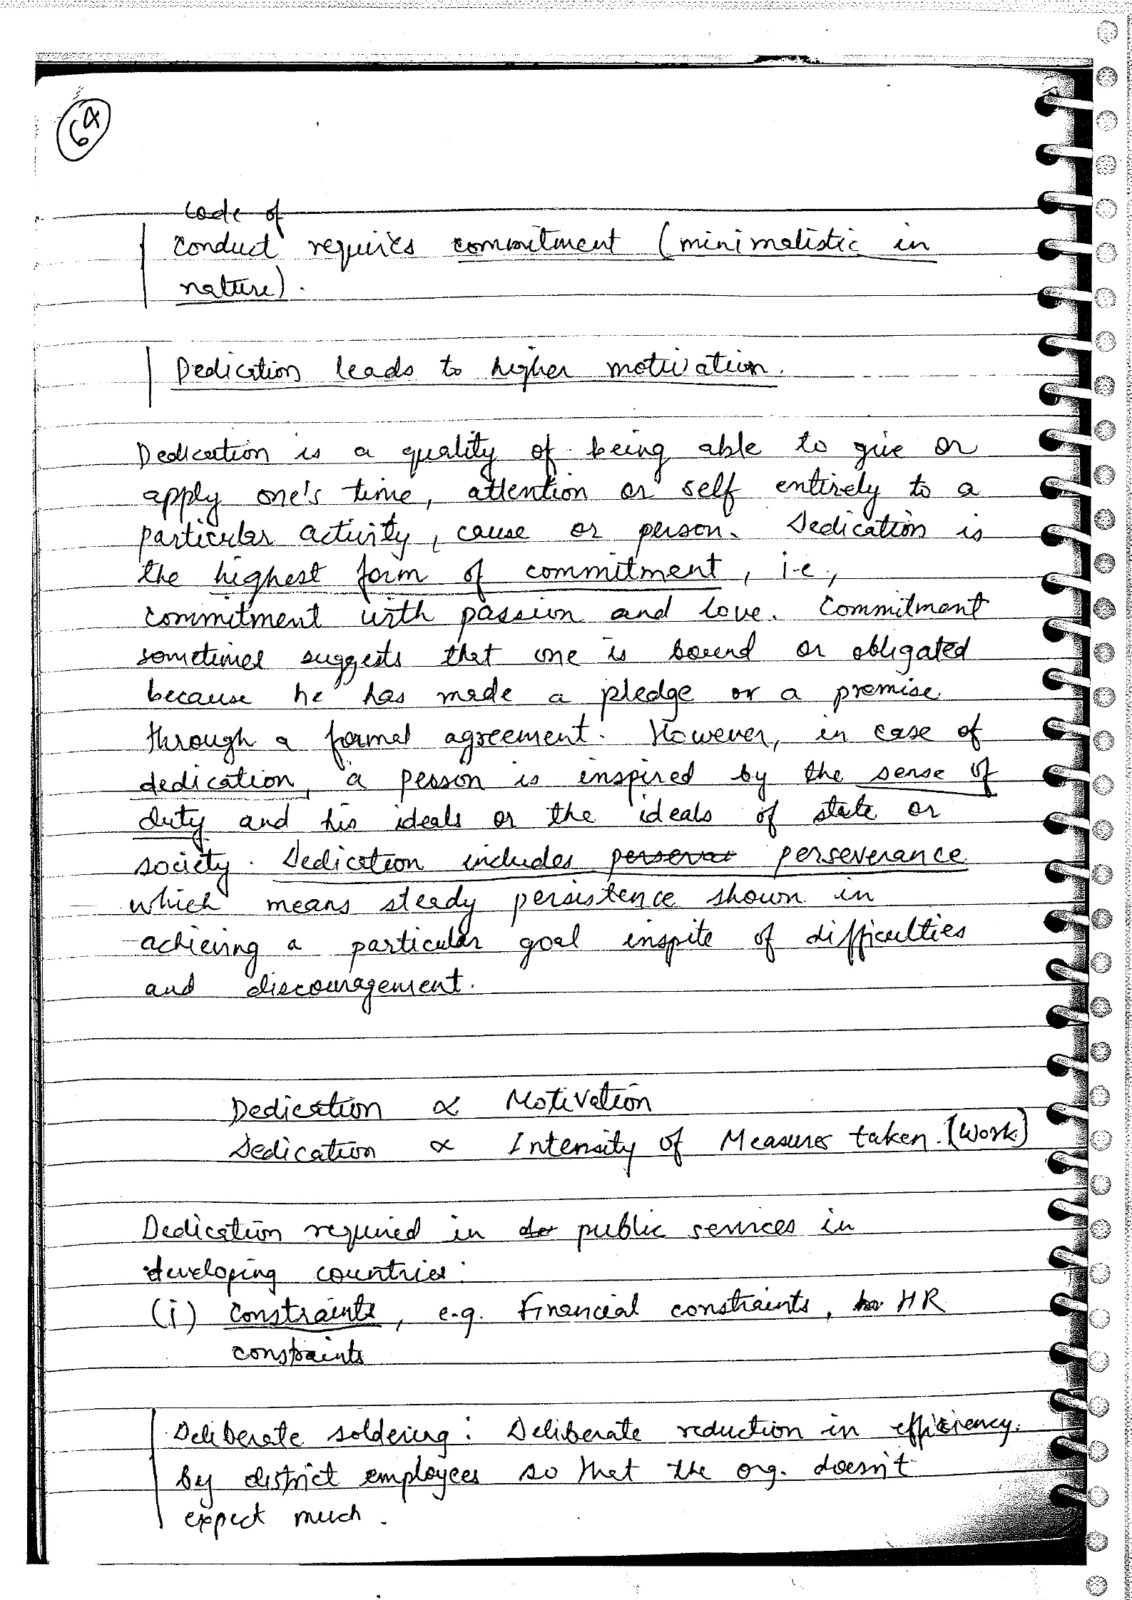 64
Code of
Conduct requires commitment (minimalistic in
nature).
Dedication leads to higher motivation.
Dedication is a quality of being able to give or
apply one's time, attention or self entirely to a
particular activity, cause or person. Dedication is
the highest form of commitment, i.e.,
commitment with passion and love. Commitment
sometimes suggests that one is bound or obligated
because he has made a pledge or a promise
through a formal agreement. However, in case of
dedication, a person is inspired by the sense of
duty and his ideals or the ideals of state or
society. Dedication includes perservat perseverance
which means steady persistence shown in
achieving a particular goal inspite of difficulties
and discouragement.
Dedication ∝ Motivation
Dedication ∝ Intensity of Measures taken. [Work]
Dedication required in public services in
developing countries:
(i) constraints, e.g. Financial constraints, HR
constraints
Deliberate soldering: Deliberate reduction in efficiency.
by district employees so that the org. doesn't
expect much.